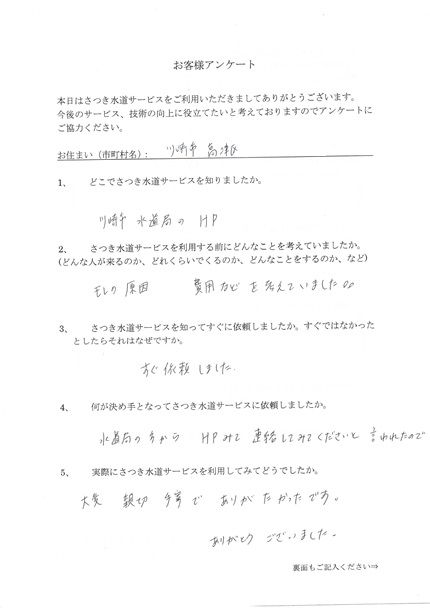 お客様アンケート
本日はさつき水道サービスをご利用いただきましてありがとうございます。
今後のサービス、技術の向上に役立てたいと考えておりますのでアンケートに
ご協力ください。
お住まい（市町村名）： 川崎市 高津区
1、 どこでさつき水道サービスを知りましたか。
川崎市 水道局の HP
2、 さつき水道サービスを利用する前にどんなことを考えていましたか。
(どんな人が来るのか、どれくらいでくるのか、どんなことをするのか、など)
モレの 原因 費用など を考えていました。
3、 さつき水道サービスを知ってすぐに依頼しましたか。すぐではなかった
としたらそれはなぜですか。
すぐ 依頼 しました.
4、 何が決め手となってさつき水道サービスに依頼しましたか。
水道局の方から HPみて 連絡してみてくださいと 言われたので
5、 実際にさつき水道サービスを利用してみてどうでしたか。
大変 親切 丁寧で ありがたかったです。
ありがとう ございました.
裏面もご記入ください⇒